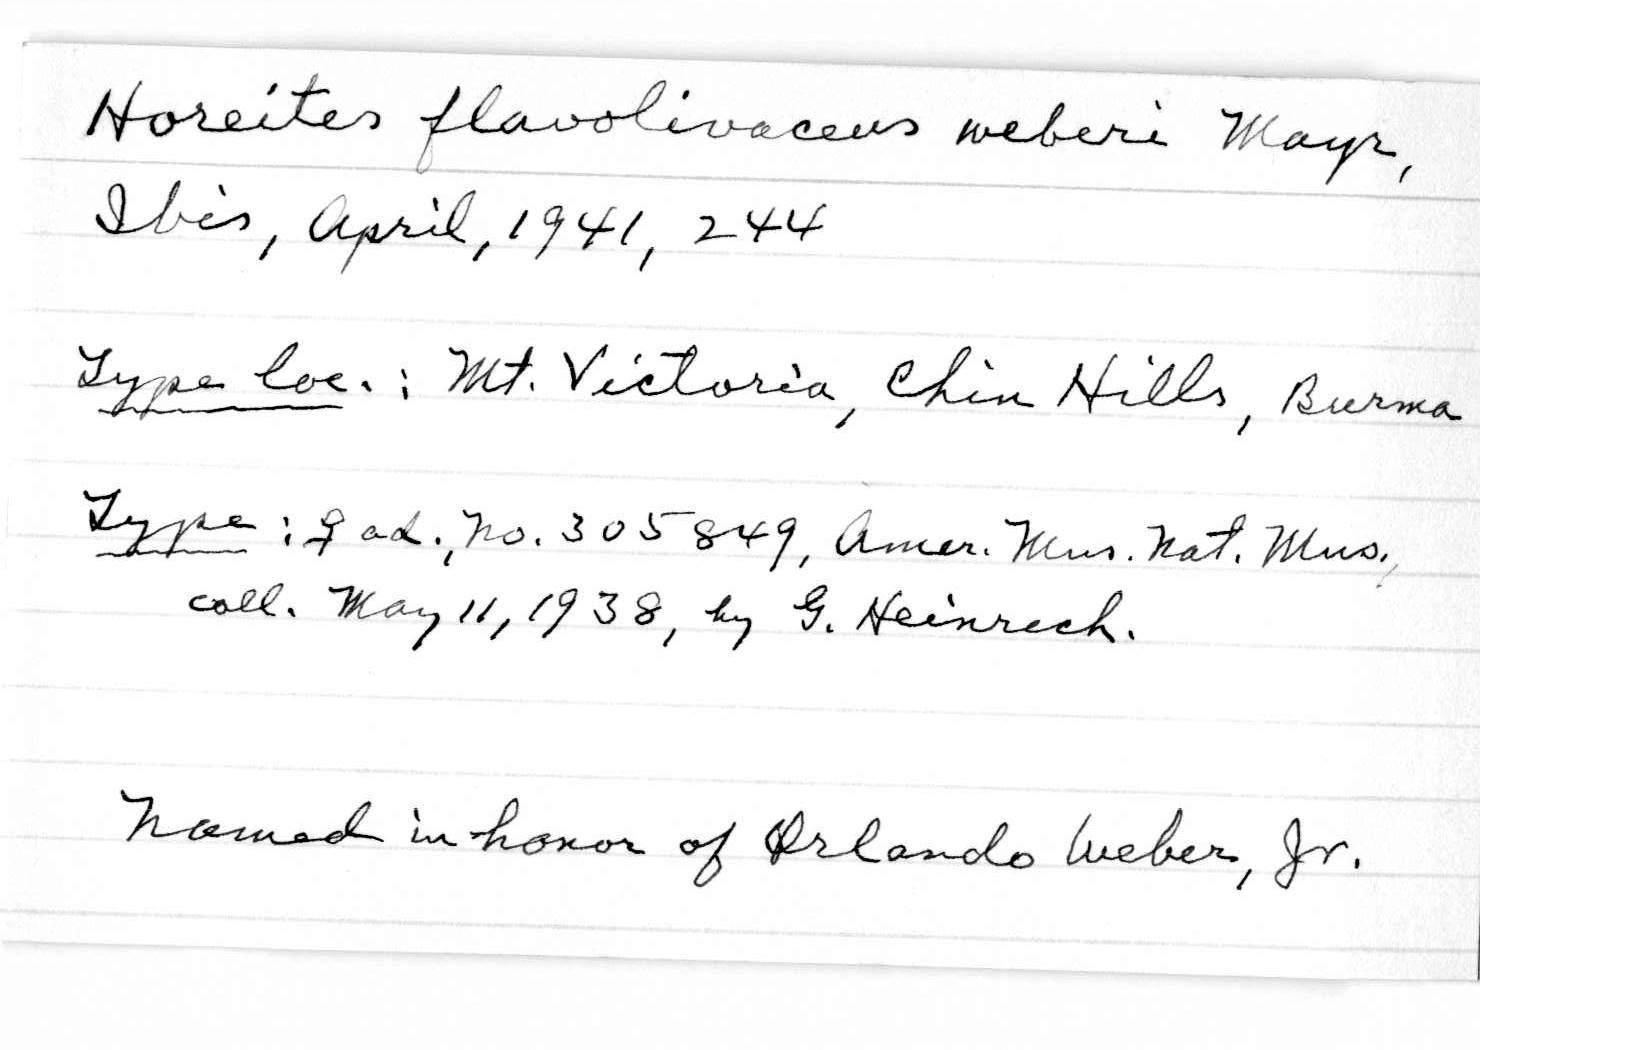 Horeites flavolivaceus weberi Mayr,
Ibis, April, 1941, 244
Type loc. : Mt. Victoria, Chin Hills, Burma
Type : ♀ ad., No. 305849, Amer. Mus. Nat. Mus.,
coll. May 11, 1938, by G. Heinrich.
Named in honor of Orlando Weber, Jr.